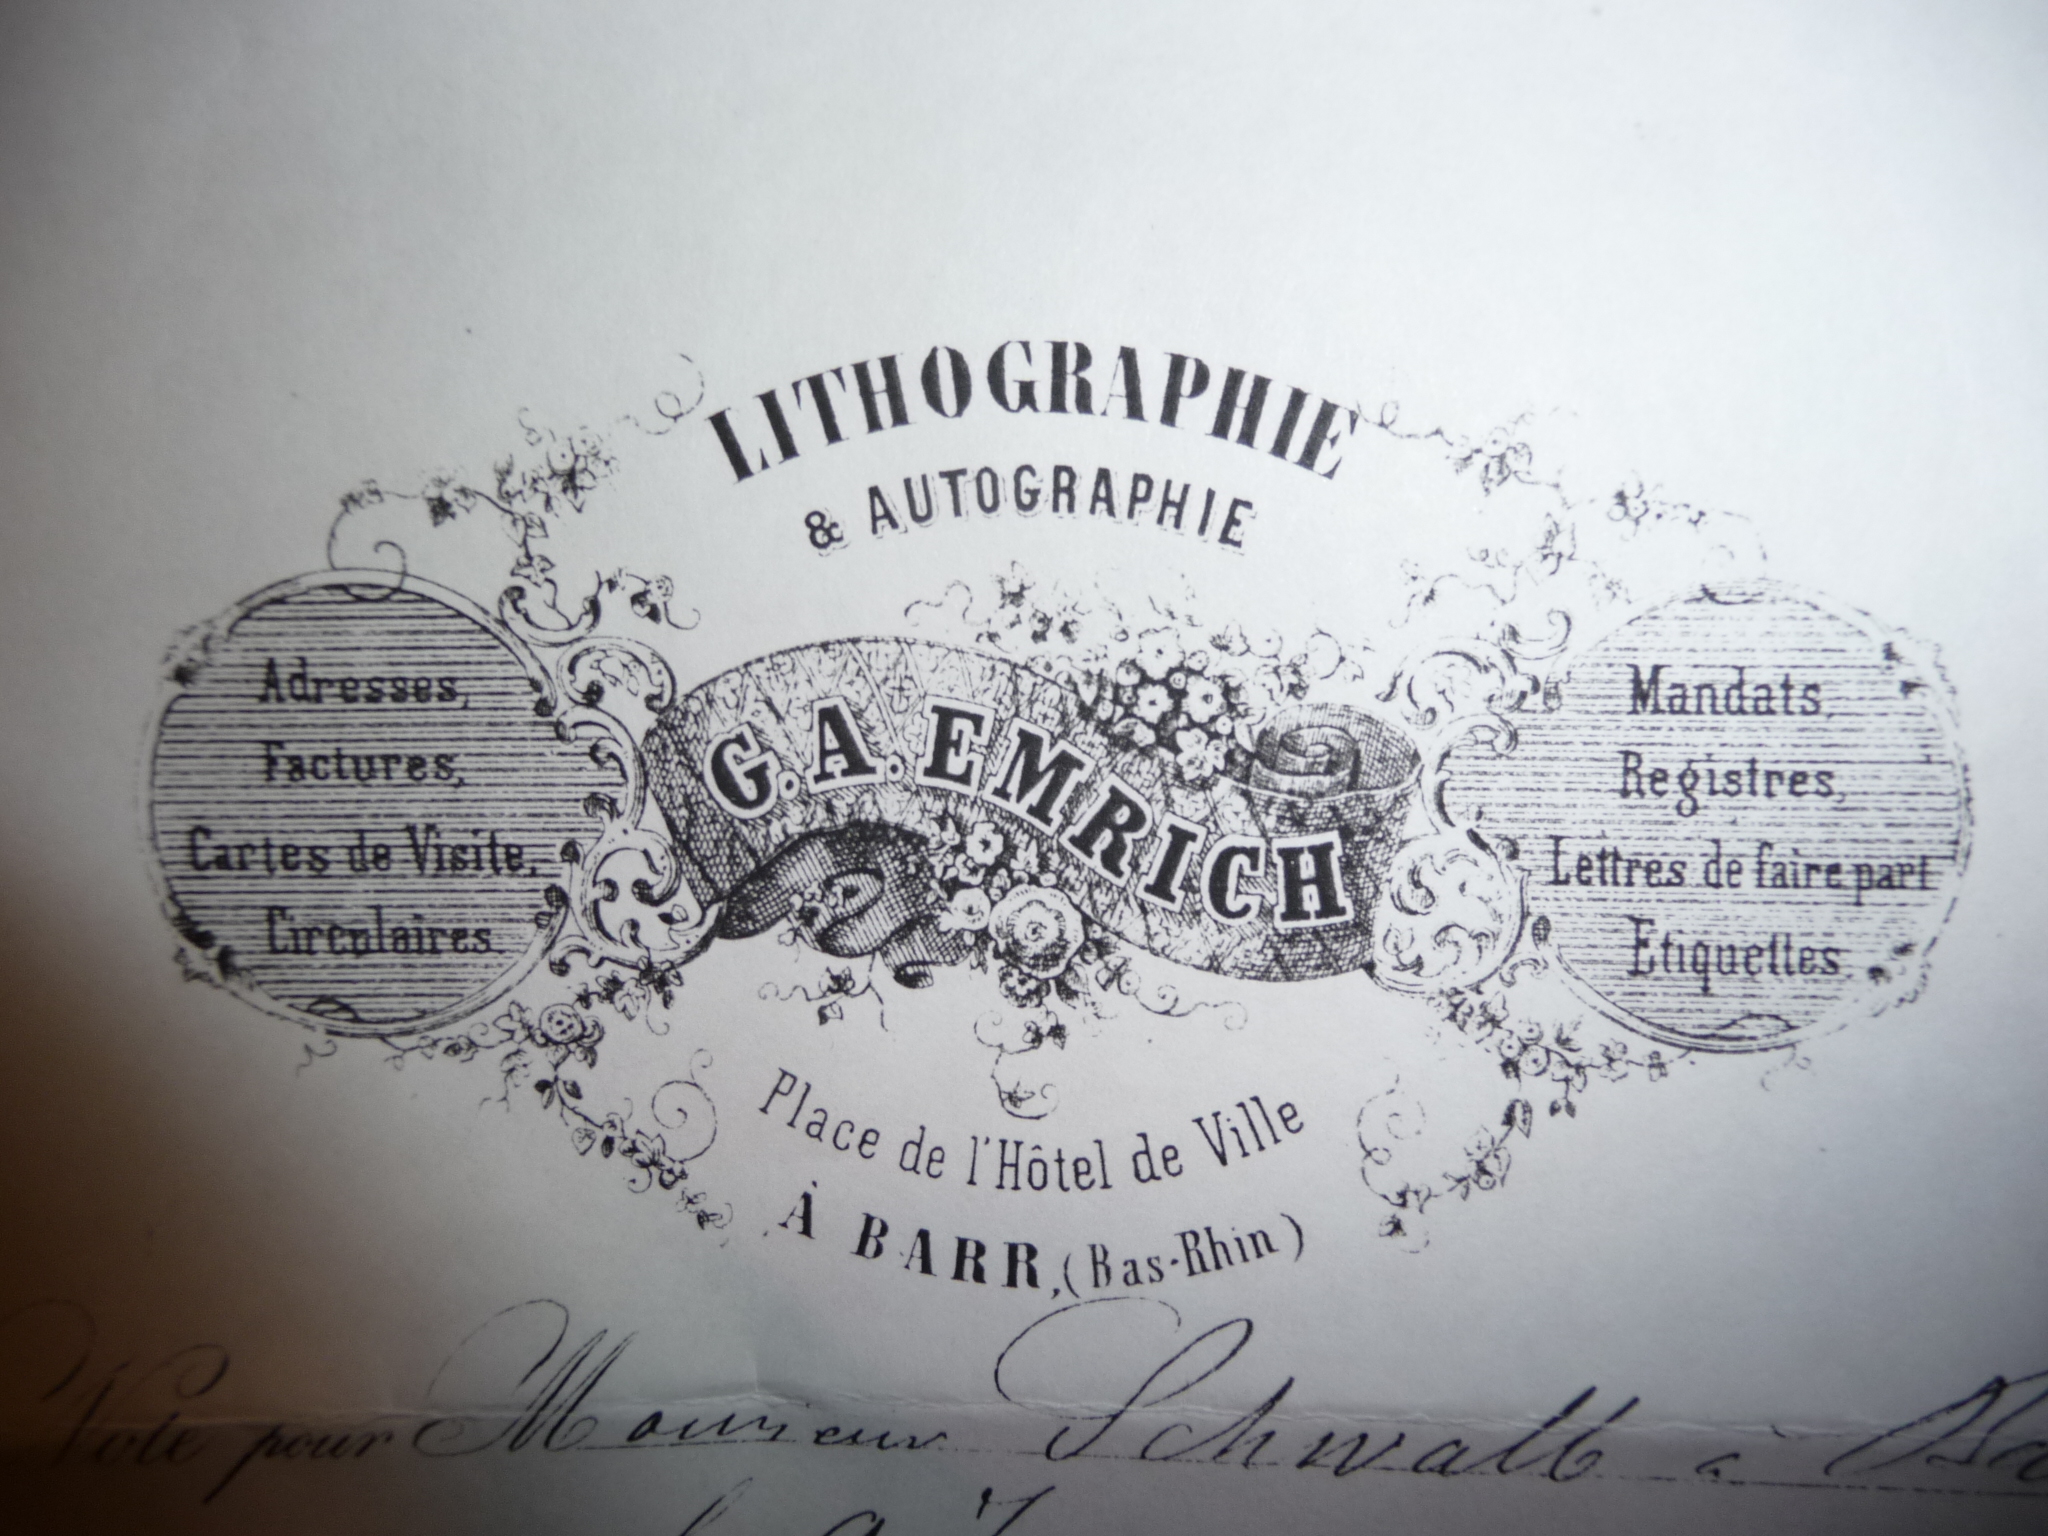 LITHOGRAPHIE
& AUTOGRAPHIE
Adresses,
Factures,
Cartes de Visite,
Circulaires.
G. A. EMRICH
Mandats,
Registres,
Lettres de faire part
Etiquettes.
Place de l'Hôtel de Ville
À BARR, (Bas-Rhin)
Note pour Monsieur Schwalb à